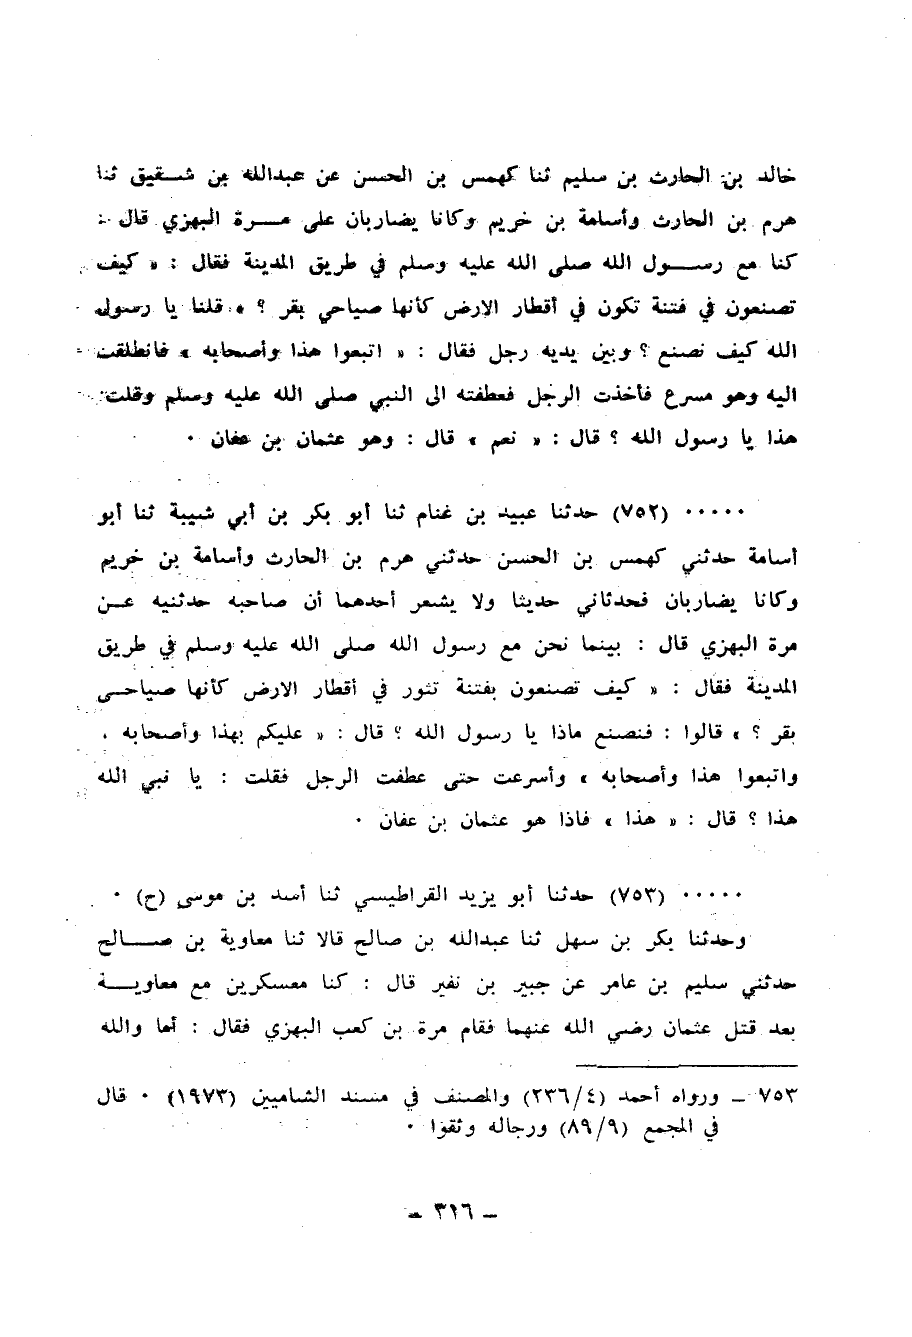 خالد بن الحارث بن سليم ثنا كهمس بن الحسن عن عبدالله بن شـقيق ثنا
هرم بن الحارث وأسامة بن خريم وكانا يضاربان على مـــرة البهزي قال :
كنا مع رســـول الله صلى الله عليه وسلم في طريق المدينة فقال : « كيف
تصنعون في فتنة تكون في أقطار الارض كأنها صياحي بقر ؟ » قلنا يا رسول
الله كيف نصنع ؟ وبين يديه رجل فقال : « اتبعوا هذا وأصحابه » فانطلقت
اليه وهو مسرع فأخذت الرجل فعطفته الى النبي صلى الله عليه وسلم وقلت :
هذا يا رسول الله ؟ قال : « نعم » قال : وهو عثمان بن عفان ٠
٠٠٠٠٠ (٧٥٢) حدثنا عبيد بن غنام ثنا أبو بكر بن أبي شيبة ثنا أبو
أسامة حدثني كهمس بن الحسن حدثني هرم بن الحارث وأسامة بن خريم
وكانا يضاربان فحدثاني حديثا ولا يشعر أحدهما أن صاحبه حدثنيه عــن
مرة البهزي قال : بينما نحن مع رسول الله صلى الله عليه وسلم في طريق
المدينة فقال : « كيف تصنعون بفتنة تثور في أقطار الارض كأنها صياحــى
بقر ؟ » قالوا : فنصنع ماذا يا رسول الله ؟ قال : « عليكم بهذا وأصحابه .
واتبعوا هذا وأصحابه » وأسرعت حتى عطفت الرجل فقلت : يا نبي الله
هذا ؟ قال : « هذا » فاذا هو عثمان بن عفان ٠
٠٠٠٠٠ (٧٥٣) حدثنا أبو يزيد القراطيسي ثنا أسد بن موسى (ح) ٠
وحدثنا بكر بن سهل ثنا عبدالله بن صالح قالا ثنا معاوية بن صـــالح
حدثني سليم بن عامر عن جبير بن نفير قال : كنا معسكرين مع معاويـــة
بعد قتل عثمان رضي الله عنهما فقام مرة بن كعب البهزي فقال : أما والله
٧٥٣ ـ ورواه أحمد (٢٣٦/٤) والمصنف في مسند الشاميين (١٩٧٣) ٠ قال
في المجمع (٨٩/٩) ورجاله وثقوا ٠
ـ ٣١٦ ـ